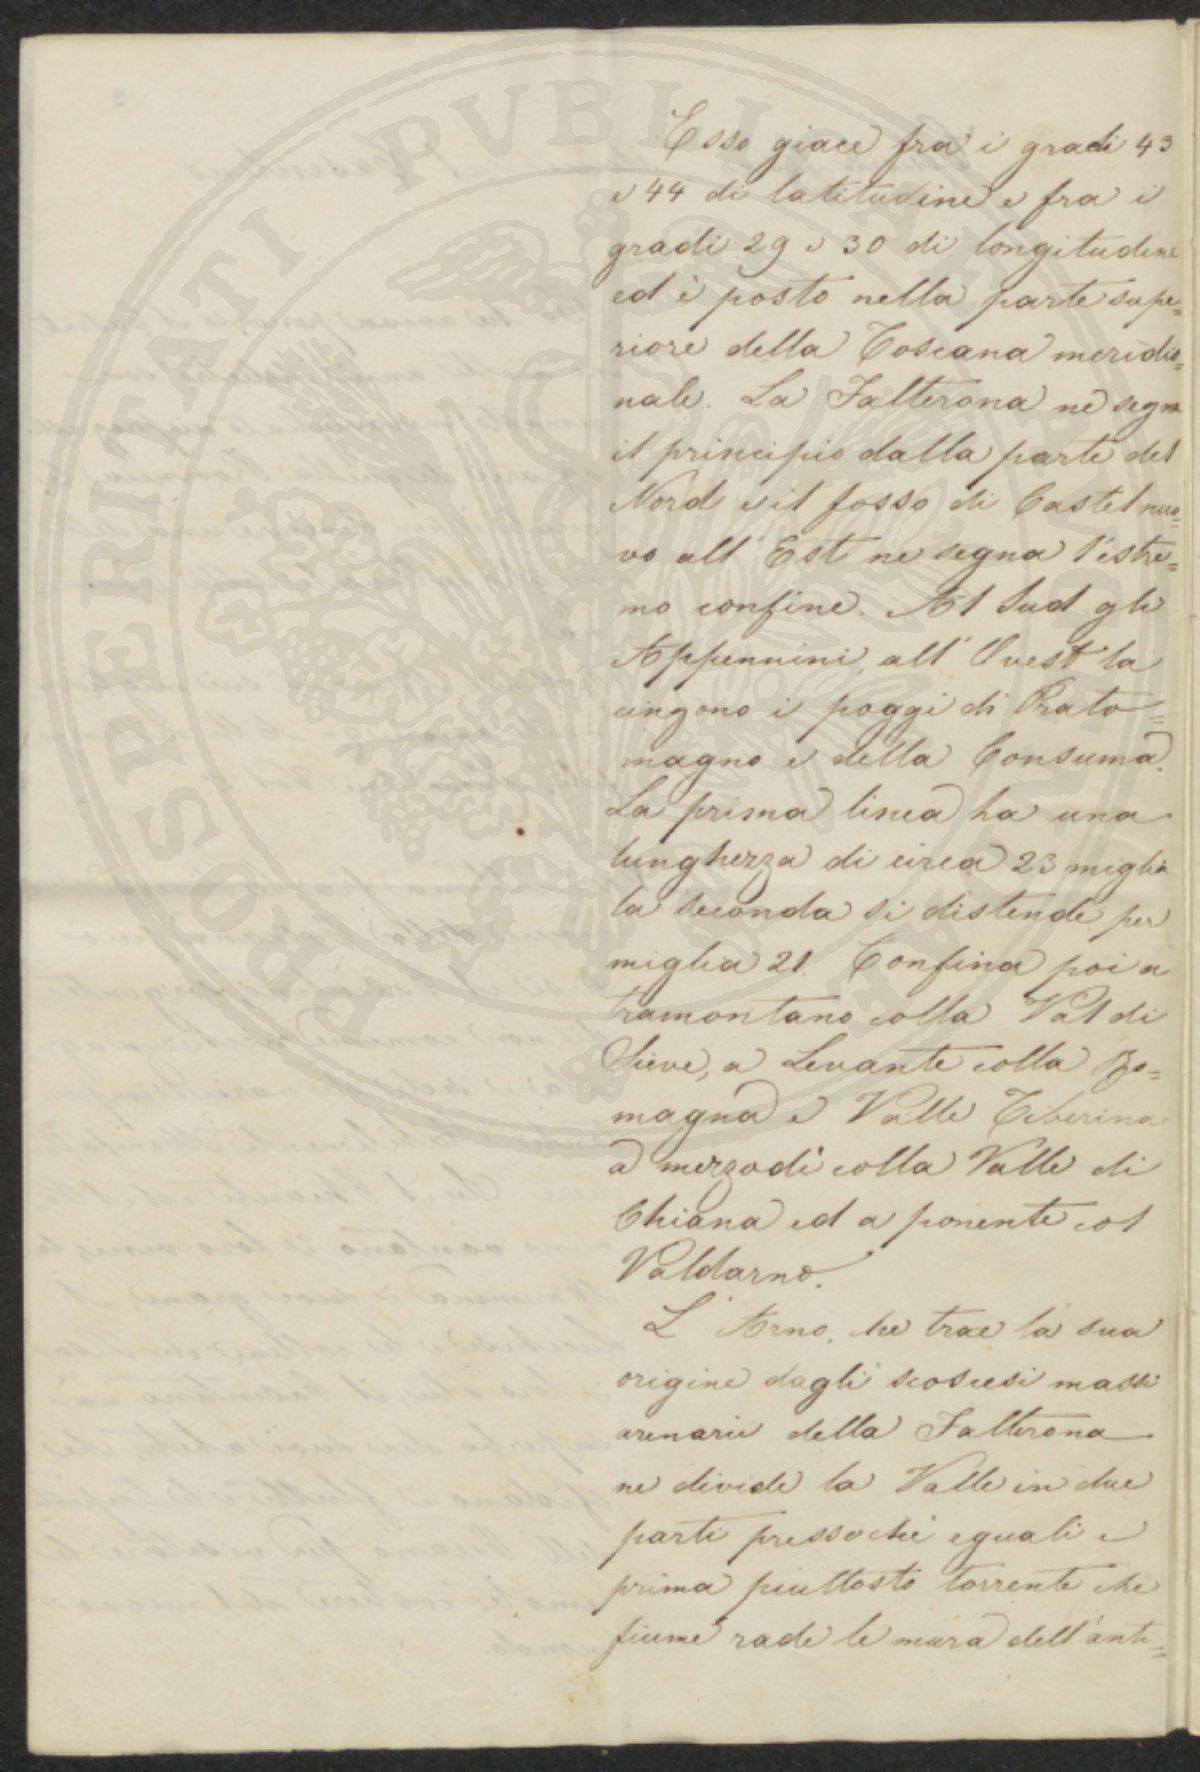 Esso giace fra i gradi 43
e 44 di latitudine e fra i
gradi 29 e 30 di longitudine
ed è posto nella parte supe=
riore della Toscana meridio=
nale. La Falterona ne segna
il principio dalla parte del
Nord e il fosso di Castelnuo=
vo all'Est ne segna l'estre=
mo confine. Al Sud gli
Appennini, all'Ovest la
cingono i poggi di Prato=
magno e della Consuma.
La prima linea ha una
lunghezza di circa 23 miglia
la seconda si distende per
miglia 21. Confina poi a
tramontano colla Val di
Sieve, a Levante colla Ro=
magna e Valle Tiberina
a mezzodì colla Valle di
Chiana ed a ponente col
Valdarno.
L'Arno, che trae la sua
origine dagli scoscesi massi
arenarii della Falterona
ne divide la Valle in due
parti pressochè eguali e
prima piuttosto torrente che
fiume rade le mura dell'anti=
PROSPERITATI PVBLICAE